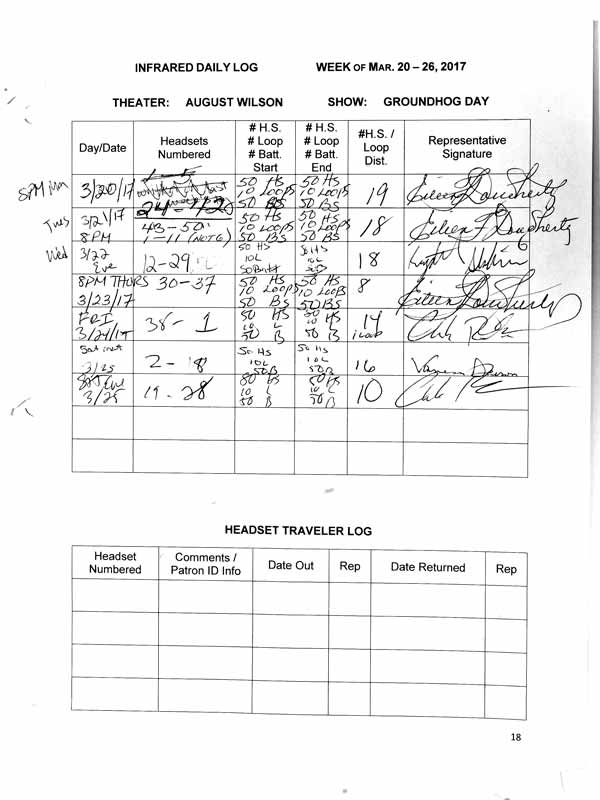 INFRARED DAILY LOG WEEK OF MAR. 20 – 26, 2017
THEATER: AUGUST WILSON SHOW: GROUNDHOG DAY
Day/Date Headsets Numbered # H.S. # Loop # Batt. Start # H.S. # Loop # Batt. End #H.S. / Loop Dist. Representative Signature
8PM Mon 3/20/17 50 HS 10 LOOPS 50 BS 50 HS 10 LOOPS 50 BS 19 Eileen F Dougherty
Tues 3/21/17 8PM 43-50 1-11 (NOT 6) 50 HS 10 LOOPS 50 BS 50 HS 10 LOOPS 50 BS 18 Eileen F Dougherty
Wed 3/22 Eve 12-29 50 HS 10L 50 Batt 18
8PM THURS 3/23/17 30-37 50 HS 10 LOOPS 50 BS 50 HS 10 LOOPS 50 BS 8 Eileen Dougherty
FRI 3/24/17 38-1 50 HS 10 L 50 B 50 HS 10 L 50 B 14
Sat mat 3/25 2-18 50 HS 10L 50B 50 HS 10L 50B 16
SAT Eve 3/25 19-28 50 HS 10 L 50 B 50 HS 10 L 50 B 10
HEADSET TRAVELER LOG
Headset Numbered Comments / Patron ID Info Date Out Rep Date Returned Rep
18